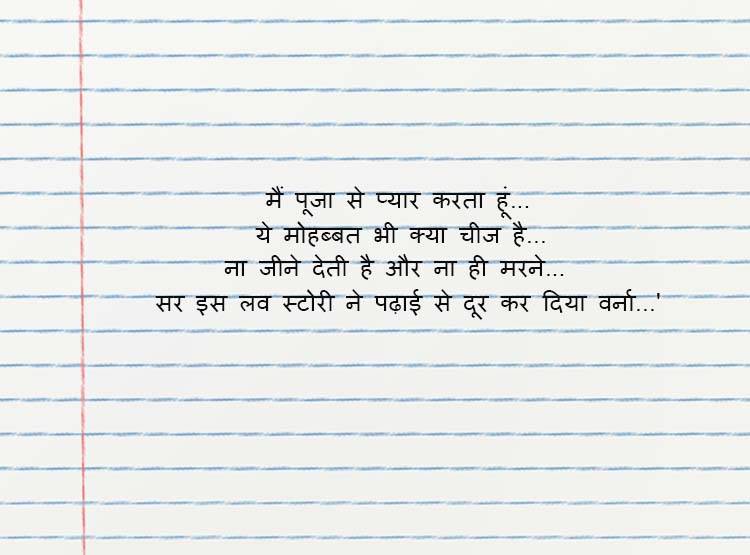 मैं पूजा से प्यार करता हूं...
ये मोहब्बत भी क्या चीज है...
ना जीने देती है और ना ही मरने...
सर इस लव स्टोरी ने पढ़ाई से दूर कर दिया वर्ना...'